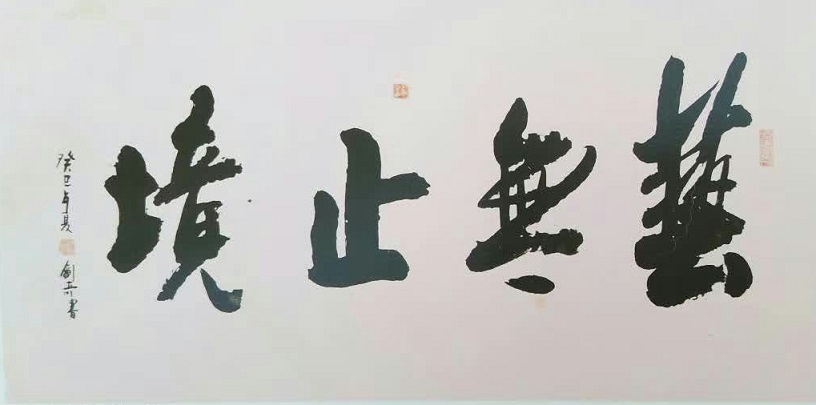 藝無止境
癸巳年夏
書